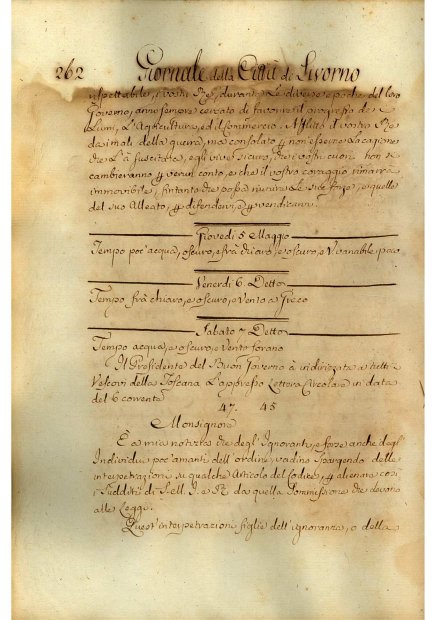 262 Giornale della Città di Livorno
rispettabile, i vostri Ré, durante le diverse epoche del loro
Governo, anno sempre cercato di favorire il progresso de
Lumi, L'Agricoltura, ed il Commercio. Afflitto il vostro Ré
dai mali della guerra, ma consolato non essere la cagione
che l'à suscitata, egli vive sicuro, che i vostri cuori non si
cambieranno verun conto, e che il vostro coraggio rimarrà
immobile, fintanto che possa riunire le sue forze, e quelle
del suo Alleato, difendervi, e vendicarvi.
Giovedì 5 Maggio
Tempo poc'acqua, oscuro, e frà chiaro, e oscuro, e V. variabile
Venerdì 6. Detto
Tempo frà chiaro, e oscuro, e Vento a Greco
Sabato 7 Detto
Tempo acqua, e oscuro, e Vento
Il Presidente del Buon Governo à indirizzata a tutti i
Vescovi della Toscana L'appresso Lettera Circolare in data
del 6 corrente
47. 45
Monsignore
È a mia notizia che degl'Ignoranti, e forse anche degl'
Individui poc'amanti dell'ordine, vadino spargendo delle
interpetrazioni su qualche Articolo del Codice, alienare così
i Sudditi di S. M. I. e R. da quella Sommissione che devono
alle Leggi.
Quest'interpetrazioni figlie dell'ignoranza, o della